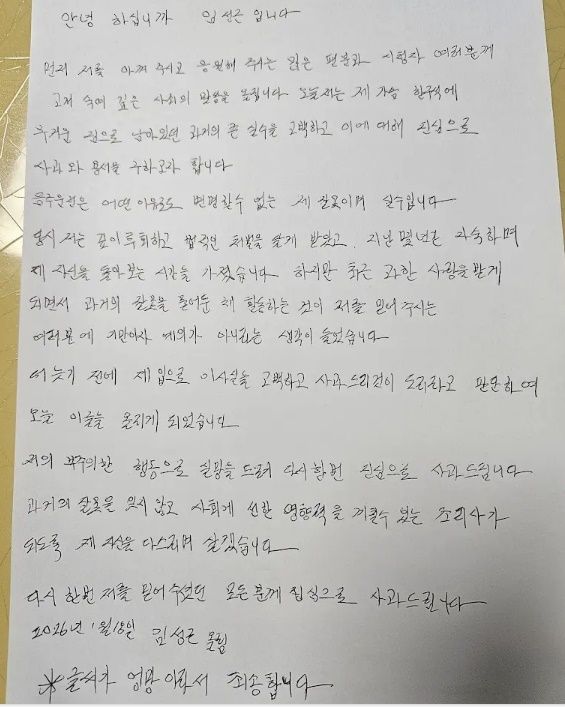 안녕 하십니까 임성근 입니다
먼저 저를 아껴 주시고 응원해 주시는 많은 팬분과 시청자 여러분께
고개 숙여 깊은 사죄의 말씀을 올립니다 오늘 저는 제 가슴 한구석에
무거운 짐으로 남아있던 과거의 큰 실수를 고백하고 이에 대해 진심으로
사과와 용서를 구하고자 합니다
음주운전은 어떤 이유로도 변명할수 없는 제 잘못이며 실수입니다
당시 저는 깊이 후회하고 법적인 처벌을 달게 받았고, 지난 몇년간 자숙하며
제 자신을 돌아보는 시간을 가졌습니다 하지만 최근 과한 사랑을 받게
되면서 과거의 잘못을 묻어둔 채 활동하는 것이 저를 믿어 주시는
여러분에 기만이자 예의가 아니라는 생각이 들었습니다
더 늦기 전에 제 입으로 이사실을 고백하고 사과 드리것이 도리라고 판단하여
오늘 이글을 올리게 되었습니다
저의 부주의한 행동으로 실망을 드려 다시한번 진심으로 사과드립니다
과거의 잘못을 잊지 않고 사회게 선한 영향력을 끼칠수 있는 조리사가
되도록 제 자신을 다스리며 살겠습니다
다시 한번 저를 믿어 주셨던 모든 분께 진심으로 사과드립니다
2026년 1월 18일 성근 올림
※글씨가 엉망이라서 죄송합니다